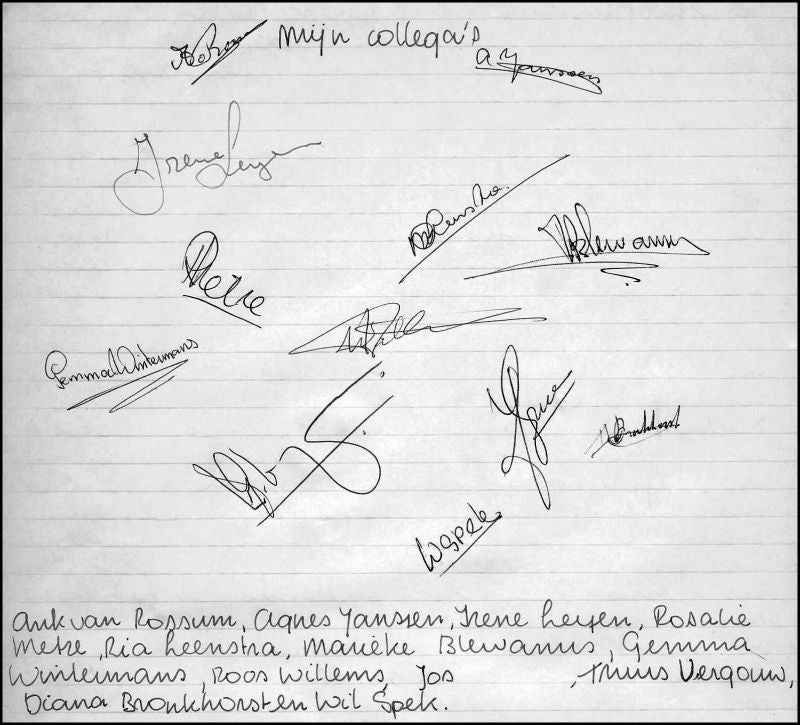 mijn collega's
A Janssen
Irene Leyen
RLeenstra.
MBlewanus
RMetze
GemmaWintermans
DBronkhorst
WSpek.
Ank van Rossum, Agnes Janssen, Irene Leyen, Rosalie
Metze, Ria Leenstra, Marieke Blewanus, Gemma
Wintermans, Roos Willems, Jos , Truus Vergouw,
Diana Bronkhorst en Wil Spek.